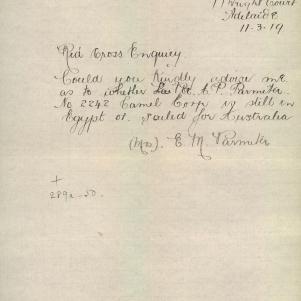 Wright Court
Adelaide
11-3-19
Red Cross Enquiry.
Could you kindly advise me
as to whether A P Parmeter
No 2242 Camel Corp is still in
Egypt or sailed for Australia
(Mrs) E. M. Parmeter